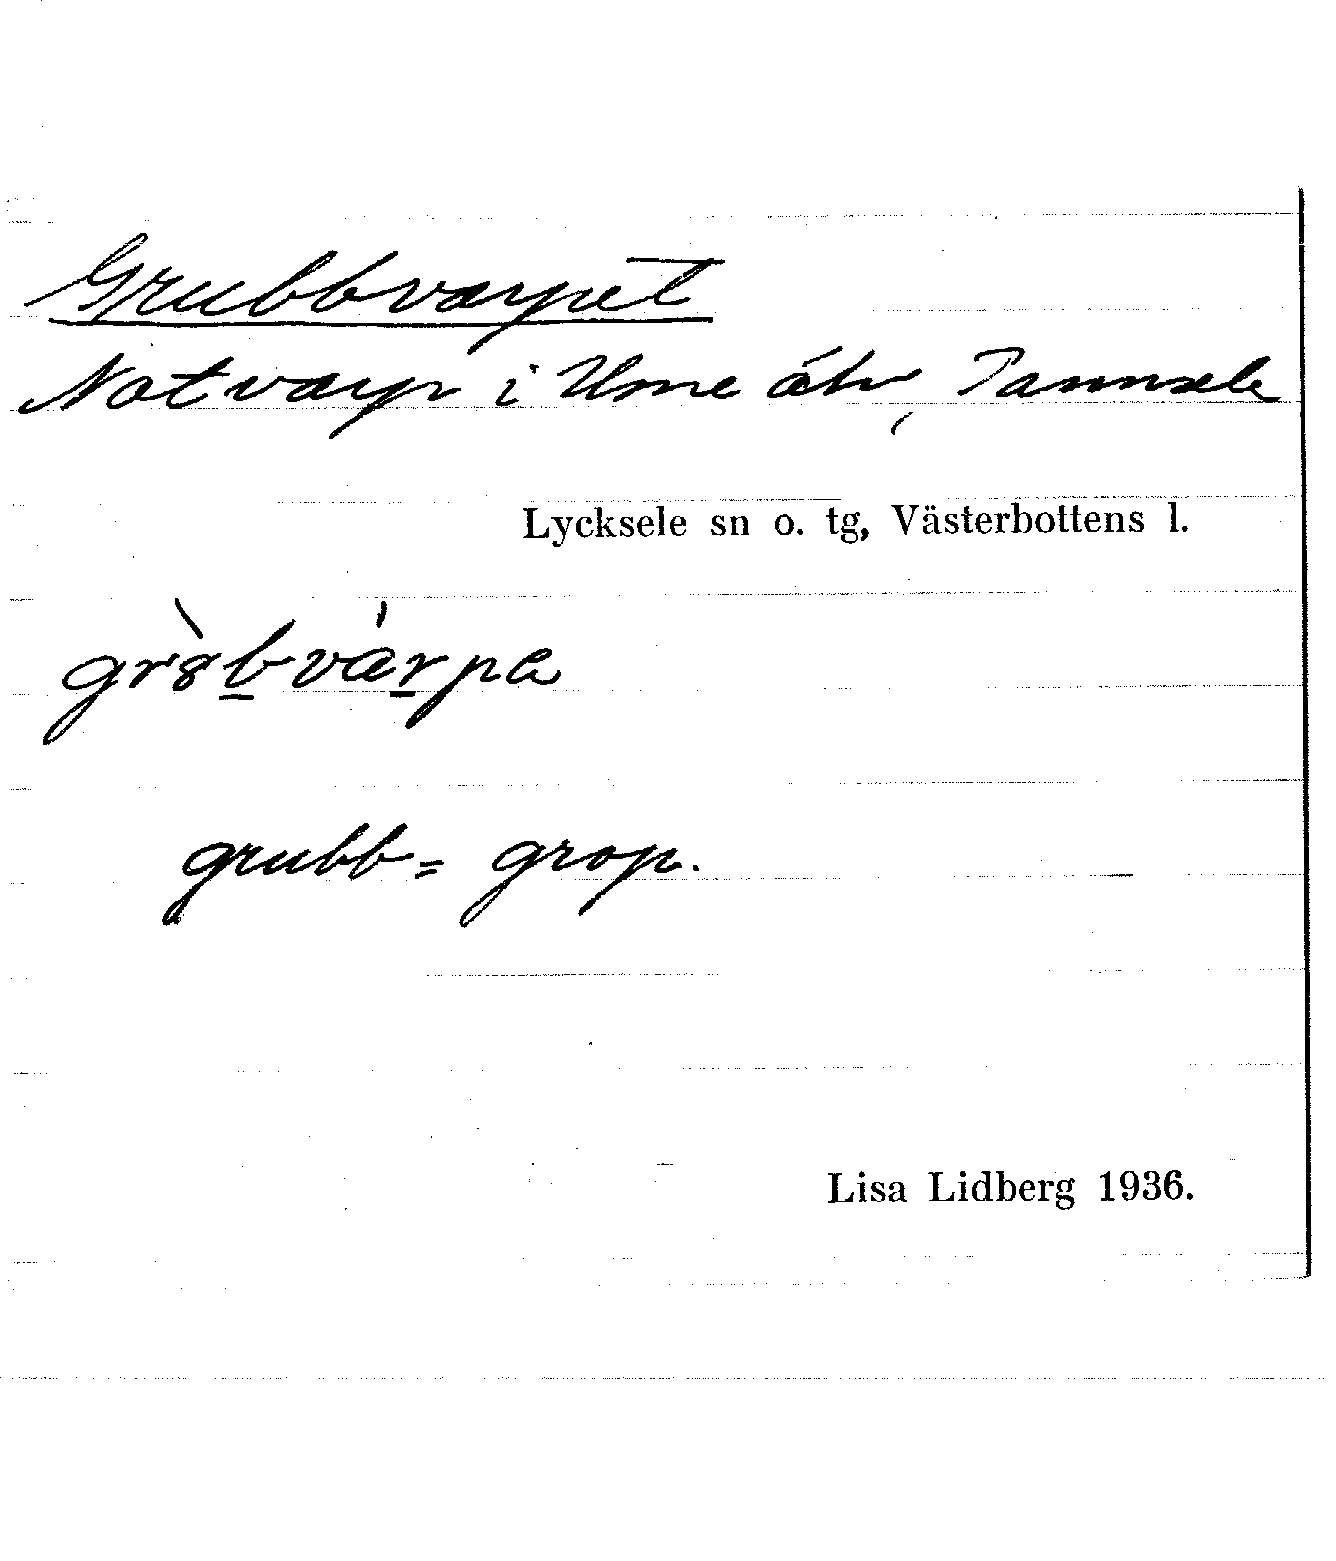 Grubbvarpet
Notvarp i Ume älv, Tannsele
Lycksele sn o. tg, Västerbottens l.
gr8̀bvárpa
grubb = grop.
Lisa Lidberg 1936.